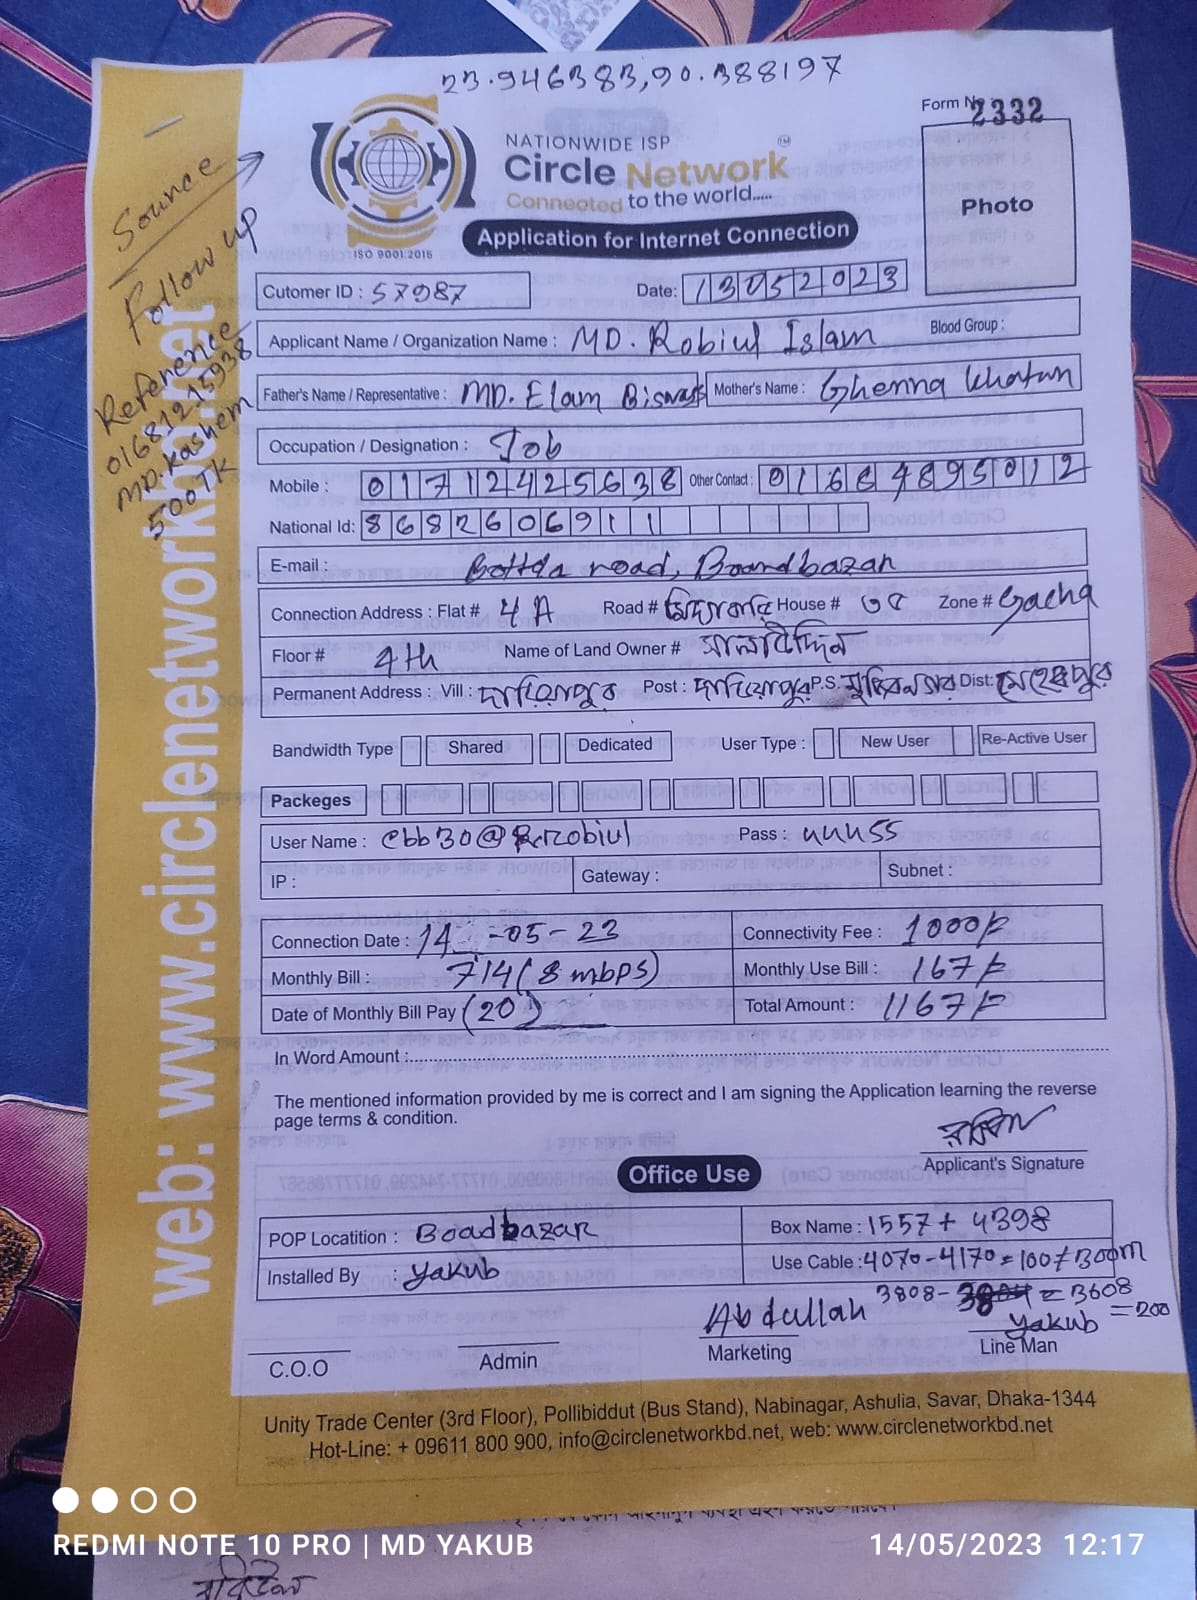 23.946383,90.388197
Form No 2332
NATIONWIDE ISP
Circle Network
Connected to the world.....
ISO 9001:2015
Application for Internet Connection
Photo
Source
Follow up
Reference
01681215938
MD. Kashem
500TK
web: www.circlenetworkbd.net
Cutomer ID : 57987 Date: 13052023
Applicant Name / Organization Name : MD. Robiul Islam Blood Group :
Father's Name / Representative : MD. Elam Biswass Mother's Name : Ghenna Khatun
Occupation / Designation : Job
Mobile : 01712425638 Other Contact : 01664895012
National Id: 8682606911
E-mail : road, Boardbazar
Connection Address : Flat # 4A Road # House # ৩৫ Zone # Gacha
Floor # 4th Name of Land Owner #
Permanent Address : Vill : দারিয়াপুর Post : দারিয়াপুর P.S. মুজিবনগর Dist: মেহেরপুর
Bandwidth Type Shared Dedicated User Type : New User Re-Active User
Packeges
User Name : Pass : uuu55
IP : Gateway : Subnet :
Connection Date : 14 -05-23 Connectivity Fee : 1000/-
Monthly Bill : 714 (8 mbps) Monthly Use Bill : 167/-
Date of Monthly Bill Pay (20) Total Amount : 1167/-
In Word Amount :
The mentioned information provided by me is correct and I am signing the Application learning the reverse
page terms & condition.
Applicant's Signature
Office Use
POP Locatition : Boadbazar Box Name : 1557 + 4398
Installed By : Yakub Use Cable : 4070-4170 = 100/300m
3808- = 3608
= 200
Abdullah Yakub
C.O.O Admin Marketing Line Man
Unity Trade Center (3rd Floor), Pollibiddut (Bus Stand), Nabinagar, Ashulia, Savar, Dhaka-1344
Hot-Line: + 09611 800 900, info@circlenetworkbd.net, web: www.circlenetworkbd.net
REDMI NOTE 10 PRO | MD YAKUB 14/05/2023 12:17